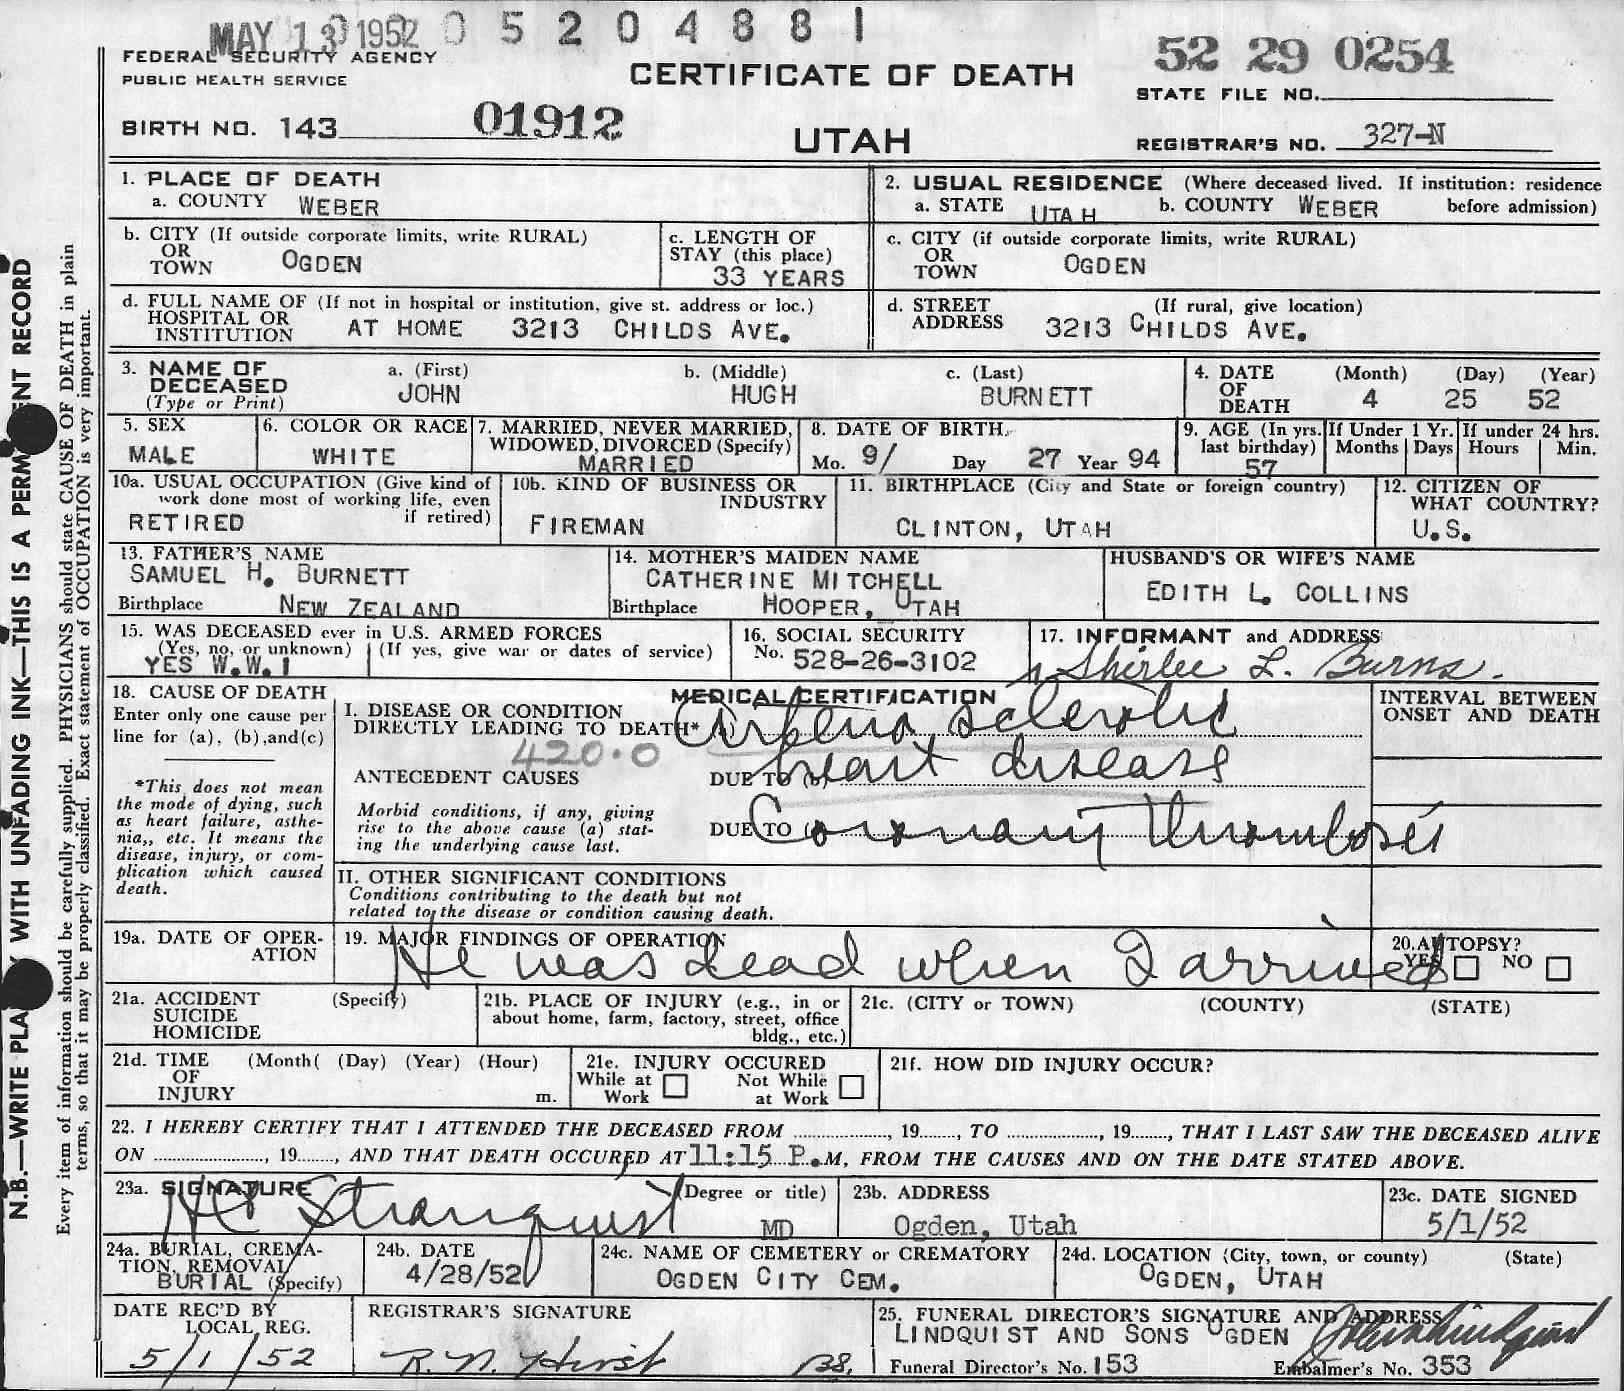 MAY 13 1952 0 5 2 0 4 8 8 1
FEDERAL SECURITY AGENCY
PUBLIC HEALTH SERVICE
CERTIFICATE OF DEATH
52 29 0254
STATE FILE NO.
BIRTH NO. 143 01912
UTAH
REGISTRAR'S NO. 327-N
1. PLACE OF DEATH
a. COUNTY WEBER
2. USUAL RESIDENCE (Where deceased lived. If institution: residence before admission)
a. STATE UTAH b. COUNTY WEBER
b. CITY (If outside corporate limits, write RURAL)
OR
TOWN OGDEN
c. LENGTH OF
STAY (this place)
33 YEARS
c. CITY (if outside corporate limits, write RURAL)
OR
TOWN OGDEN
d. FULL NAME OF (If not in hospital or institution, give st. address or loc.)
HOSPITAL OR
INSTITUTION AT HOME 3213 CHILDS AVE.
d. STREET (If rural, give location)
ADDRESS 3213 CHILDS AVE.
3. NAME OF
DECEASED
(Type or Print)
a. (First)
JOHN
b. (Middle)
HUGH
c. (Last)
BURNETT
4. DATE
OF
DEATH
(Month) (Day) (Year)
4 25 52
5. SEX
MALE
6. COLOR OR RACE
WHITE
7. MARRIED, NEVER MARRIED,
WIDOWED, DIVORCED (Specify)
MARRIED
8. DATE OF BIRTH.
Mo. 9/ Day 27 Year 94
9. AGE (In yrs.
last birthday)
57
If Under 1 Yr.
Months Days
If under 24 hrs.
Hours Min.
10a. USUAL OCCUPATION (Give kind of
work done most of working life, even
if retired)
RETIRED
10b. KIND OF BUSINESS OR
INDUSTRY
FIREMAN
11. BIRTHPLACE (City and State or foreign country)
CLINTON, UTAH
12. CITIZEN OF
WHAT COUNTRY?
U.S.
13. FATHER'S NAME
SAMUEL H. BURNETT
Birthplace NEW ZEALAND
14. MOTHER'S MAIDEN NAME
CATHERINE MITCHELL
Birthplace HOOPER, UTAH
HUSBAND'S OR WIFE'S NAME
EDITH L. COLLINS
15. WAS DECEASED ever in U.S. ARMED FORCES
(Yes, no, or unknown) (If yes, give war or dates of service)
YES W.W.I
16. SOCIAL SECURITY
No. 528-26-3102
17. INFORMANT and ADDRESS
Shirlee L. Burns.
18. CAUSE OF DEATH
Enter only one cause per
line for (a), (b),and(c)
*This does not mean
the mode of dying, such
as heart failure, asthe-
nia,, etc. It means the
disease, injury, or com-
plication which caused
death.
MEDICAL CERTIFICATION
I. DISEASE OR CONDITION
DIRECTLY LEADING TO DEATH* (a) Arterio sclerotic
420.0
ANTECEDENT CAUSES
DUE TO (b) heart disease
Morbid conditions, if any, giving
rise to the above cause (a) stat-
ing the underlying cause last.
DUE TO (c) Coronary thrombosis
INTERVAL BETWEEN
ONSET AND DEATH
II. OTHER SIGNIFICANT CONDITIONS
Conditions contributing to the death but not
related to the disease or condition causing death.
19a. DATE OF OPER-
ATION
19. MAJOR FINDINGS OF OPERATION
He was dead when I arrived
20. AUTOPSY?
YES NO
21a. ACCIDENT (Specify)
SUICIDE
HOMICIDE
21b. PLACE OF INJURY (e.g., in or
about home, farm, factory, street, office
bldg., etc.)
21c. (CITY or TOWN) (COUNTY) (STATE)
21d. TIME (Month( (Day) (Year) (Hour)
OF
INJURY m.
21e. INJURY OCCURED
While at Work Not While at Work
21f. HOW DID INJURY OCCUR?
22. I HEREBY CERTIFY THAT I ATTENDED THE DECEASED FROM ................, 19......., TO ................, 19......., THAT I LAST SAW THE DECEASED ALIVE
ON ..................., 19......., AND THAT DEATH OCCURED AT 11:15 P.M, FROM THE CAUSES AND ON THE DATE STATED ABOVE.
23a. SIGNATURE (Degree or title)
Stranquist MD
23b. ADDRESS
Ogden, Utah
23c. DATE SIGNED
5/1/52
24a. BURIAL, CREMA-
TION, REMOVAL
BURIAL (Specify)
24b. DATE
4/28/52
24c. NAME OF CEMETERY or CREMATORY
OGDEN CITY CEM.
24d. LOCATION (City, town, or county) (State)
OGDEN, UTAH
DATE REC'D BY
LOCAL REG.
5/1/52
REGISTRAR'S SIGNATURE
R. N. Hirst
25. FUNERAL DIRECTOR'S SIGNATURE AND ADDRESS
LINDQUIST AND SONS OGDEN
Funeral Director's No. 153 Embalmer's No. 353
N.B.—WRITE PLA WITH UNFADING INK—THIS IS A PERM ENT RECORD
Every item of information should be carefully supplied. PHYSICIANS should state CAUSE OF DEATH in plain
terms, so that it may be properly classified. Exact statement of OCCUPATION is very important.